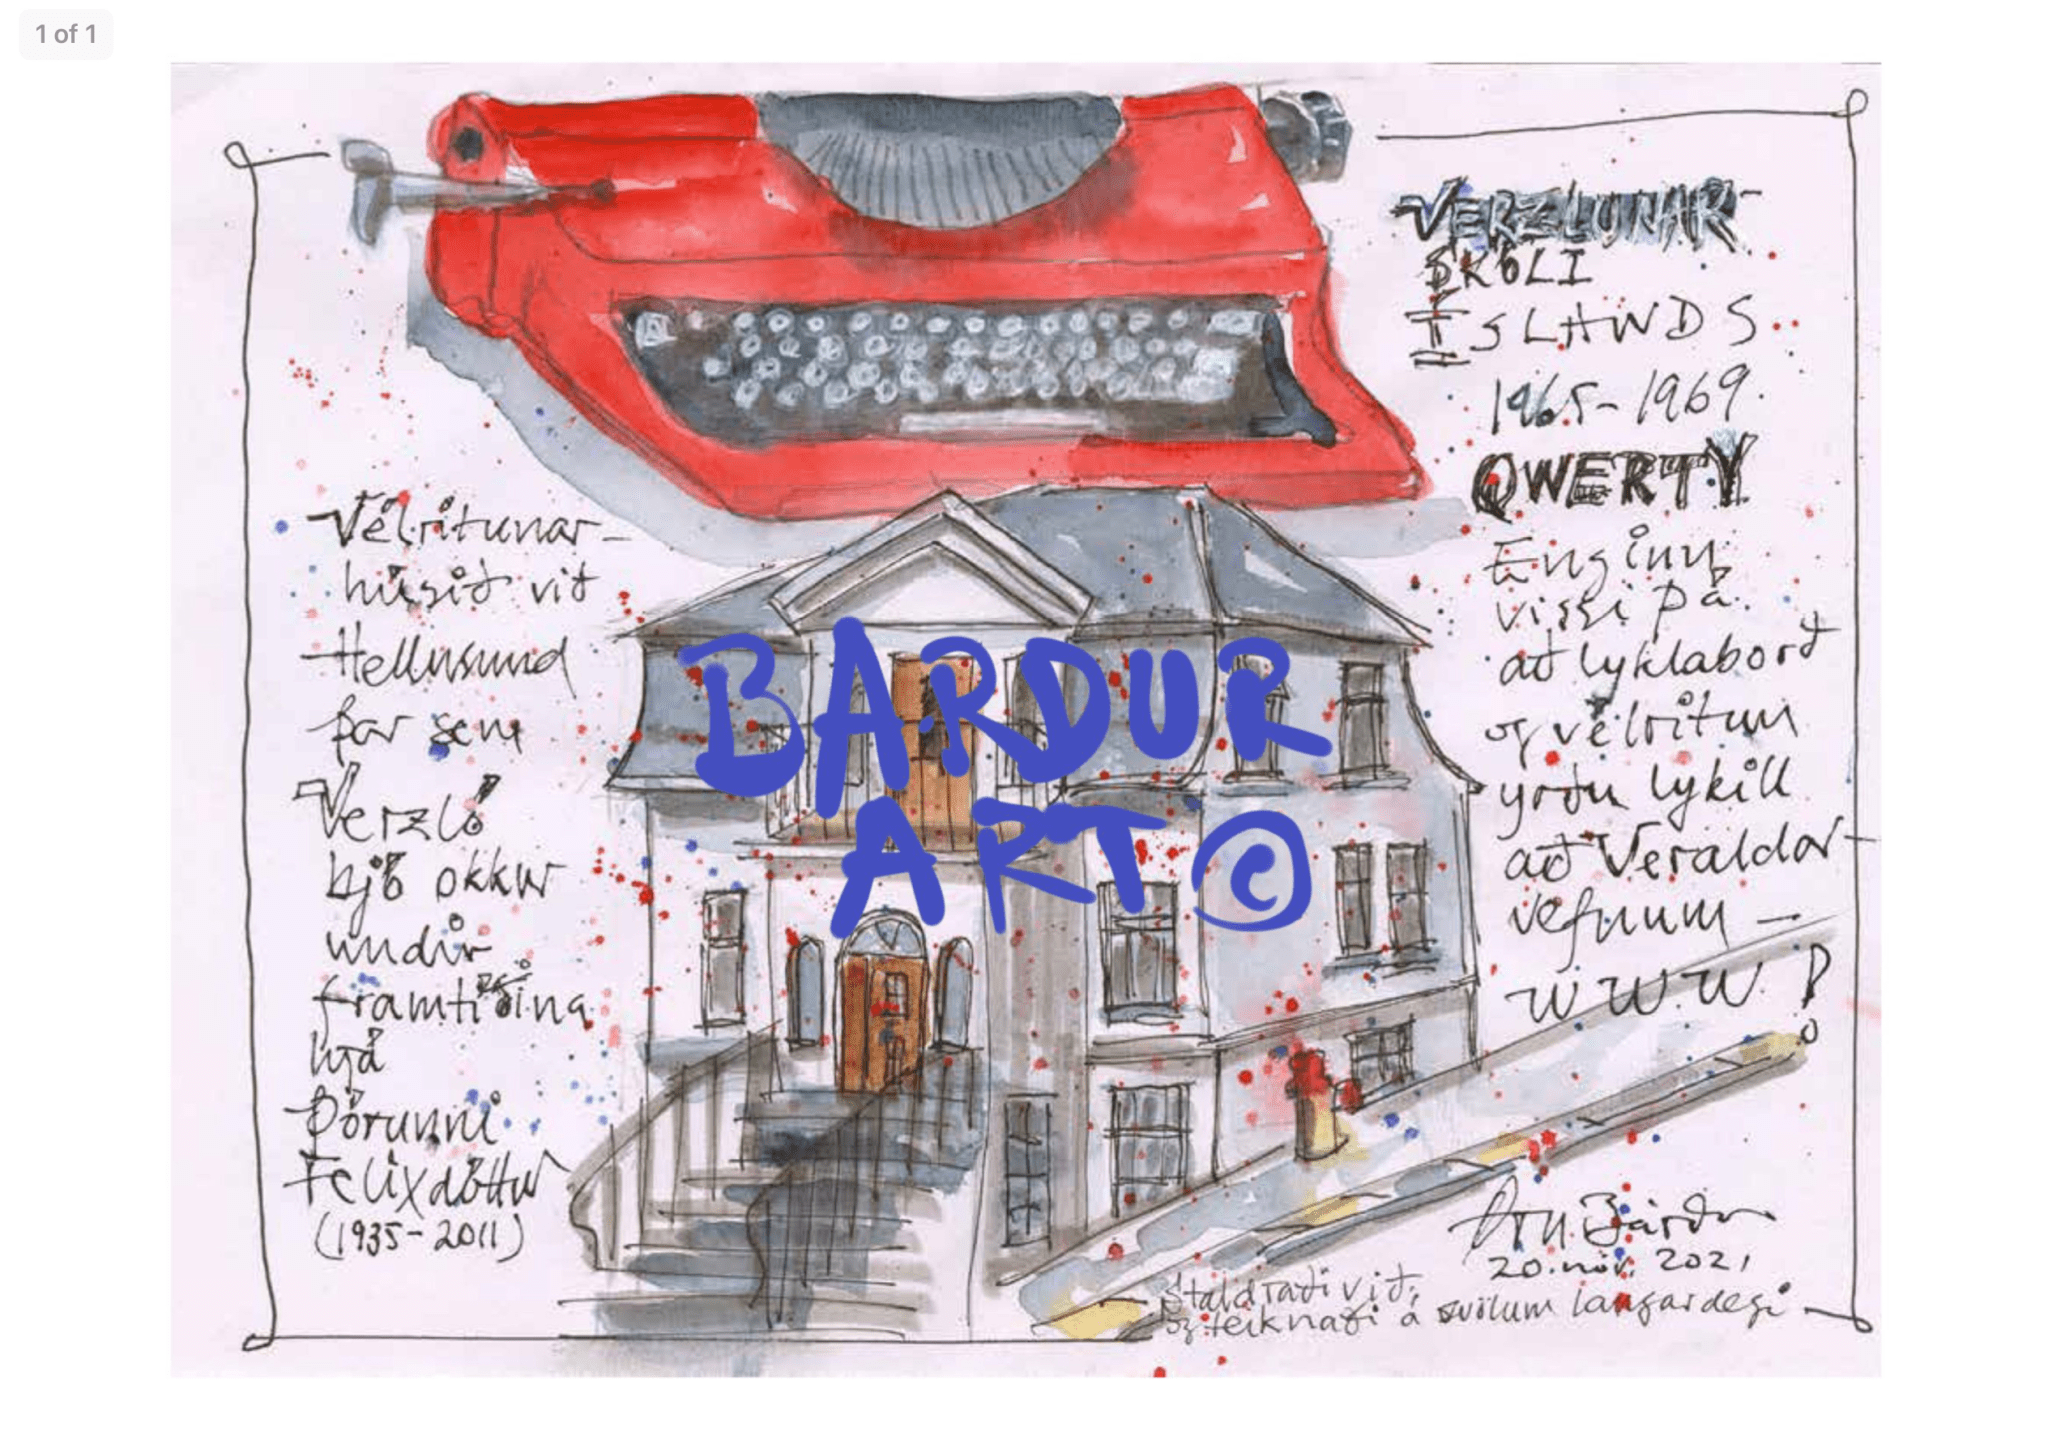 1 of 1
VERZLUNAR-
SKÓLI
ÍSLANDS
1965-1969.
QWERTY
Enginn
vissi þá.
að lyklaborð
og vélritun
yrðu lykill
að Veraldar-
vefnum —
W.W.W.
Vélritunar-
húsið við
Hellusund
þar sem
Verzló
bjó okkur
undir
framtíðina
hjá
Þórunni
Felixdóttur
(1935-2011)
BARDUR
ART ©
Árni Bárður
20. nóv. 2021
Staldraði við,
og teiknaði á svölum laugardegi